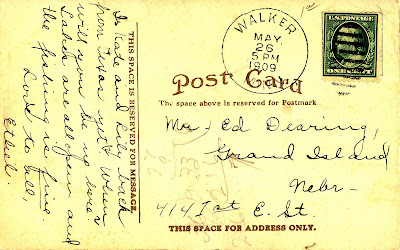 Is Kate and Lily back
from Texas yet? When
will you be up here?
Lakes are all open and
the fishing is fine
Love to all,
Ethel.
THIS SPACE IS RESERVED FOR MESSAGE.
WALKER
MAY
26
5 PM
1909
U.S. POSTAGE
Post Card
The space above is reserved for Postmark
Mr. Ed Dearing,
Grand Island
Nebr-
414 1st E. St.
THIS SPACE FOR ADDRESS ONLY.